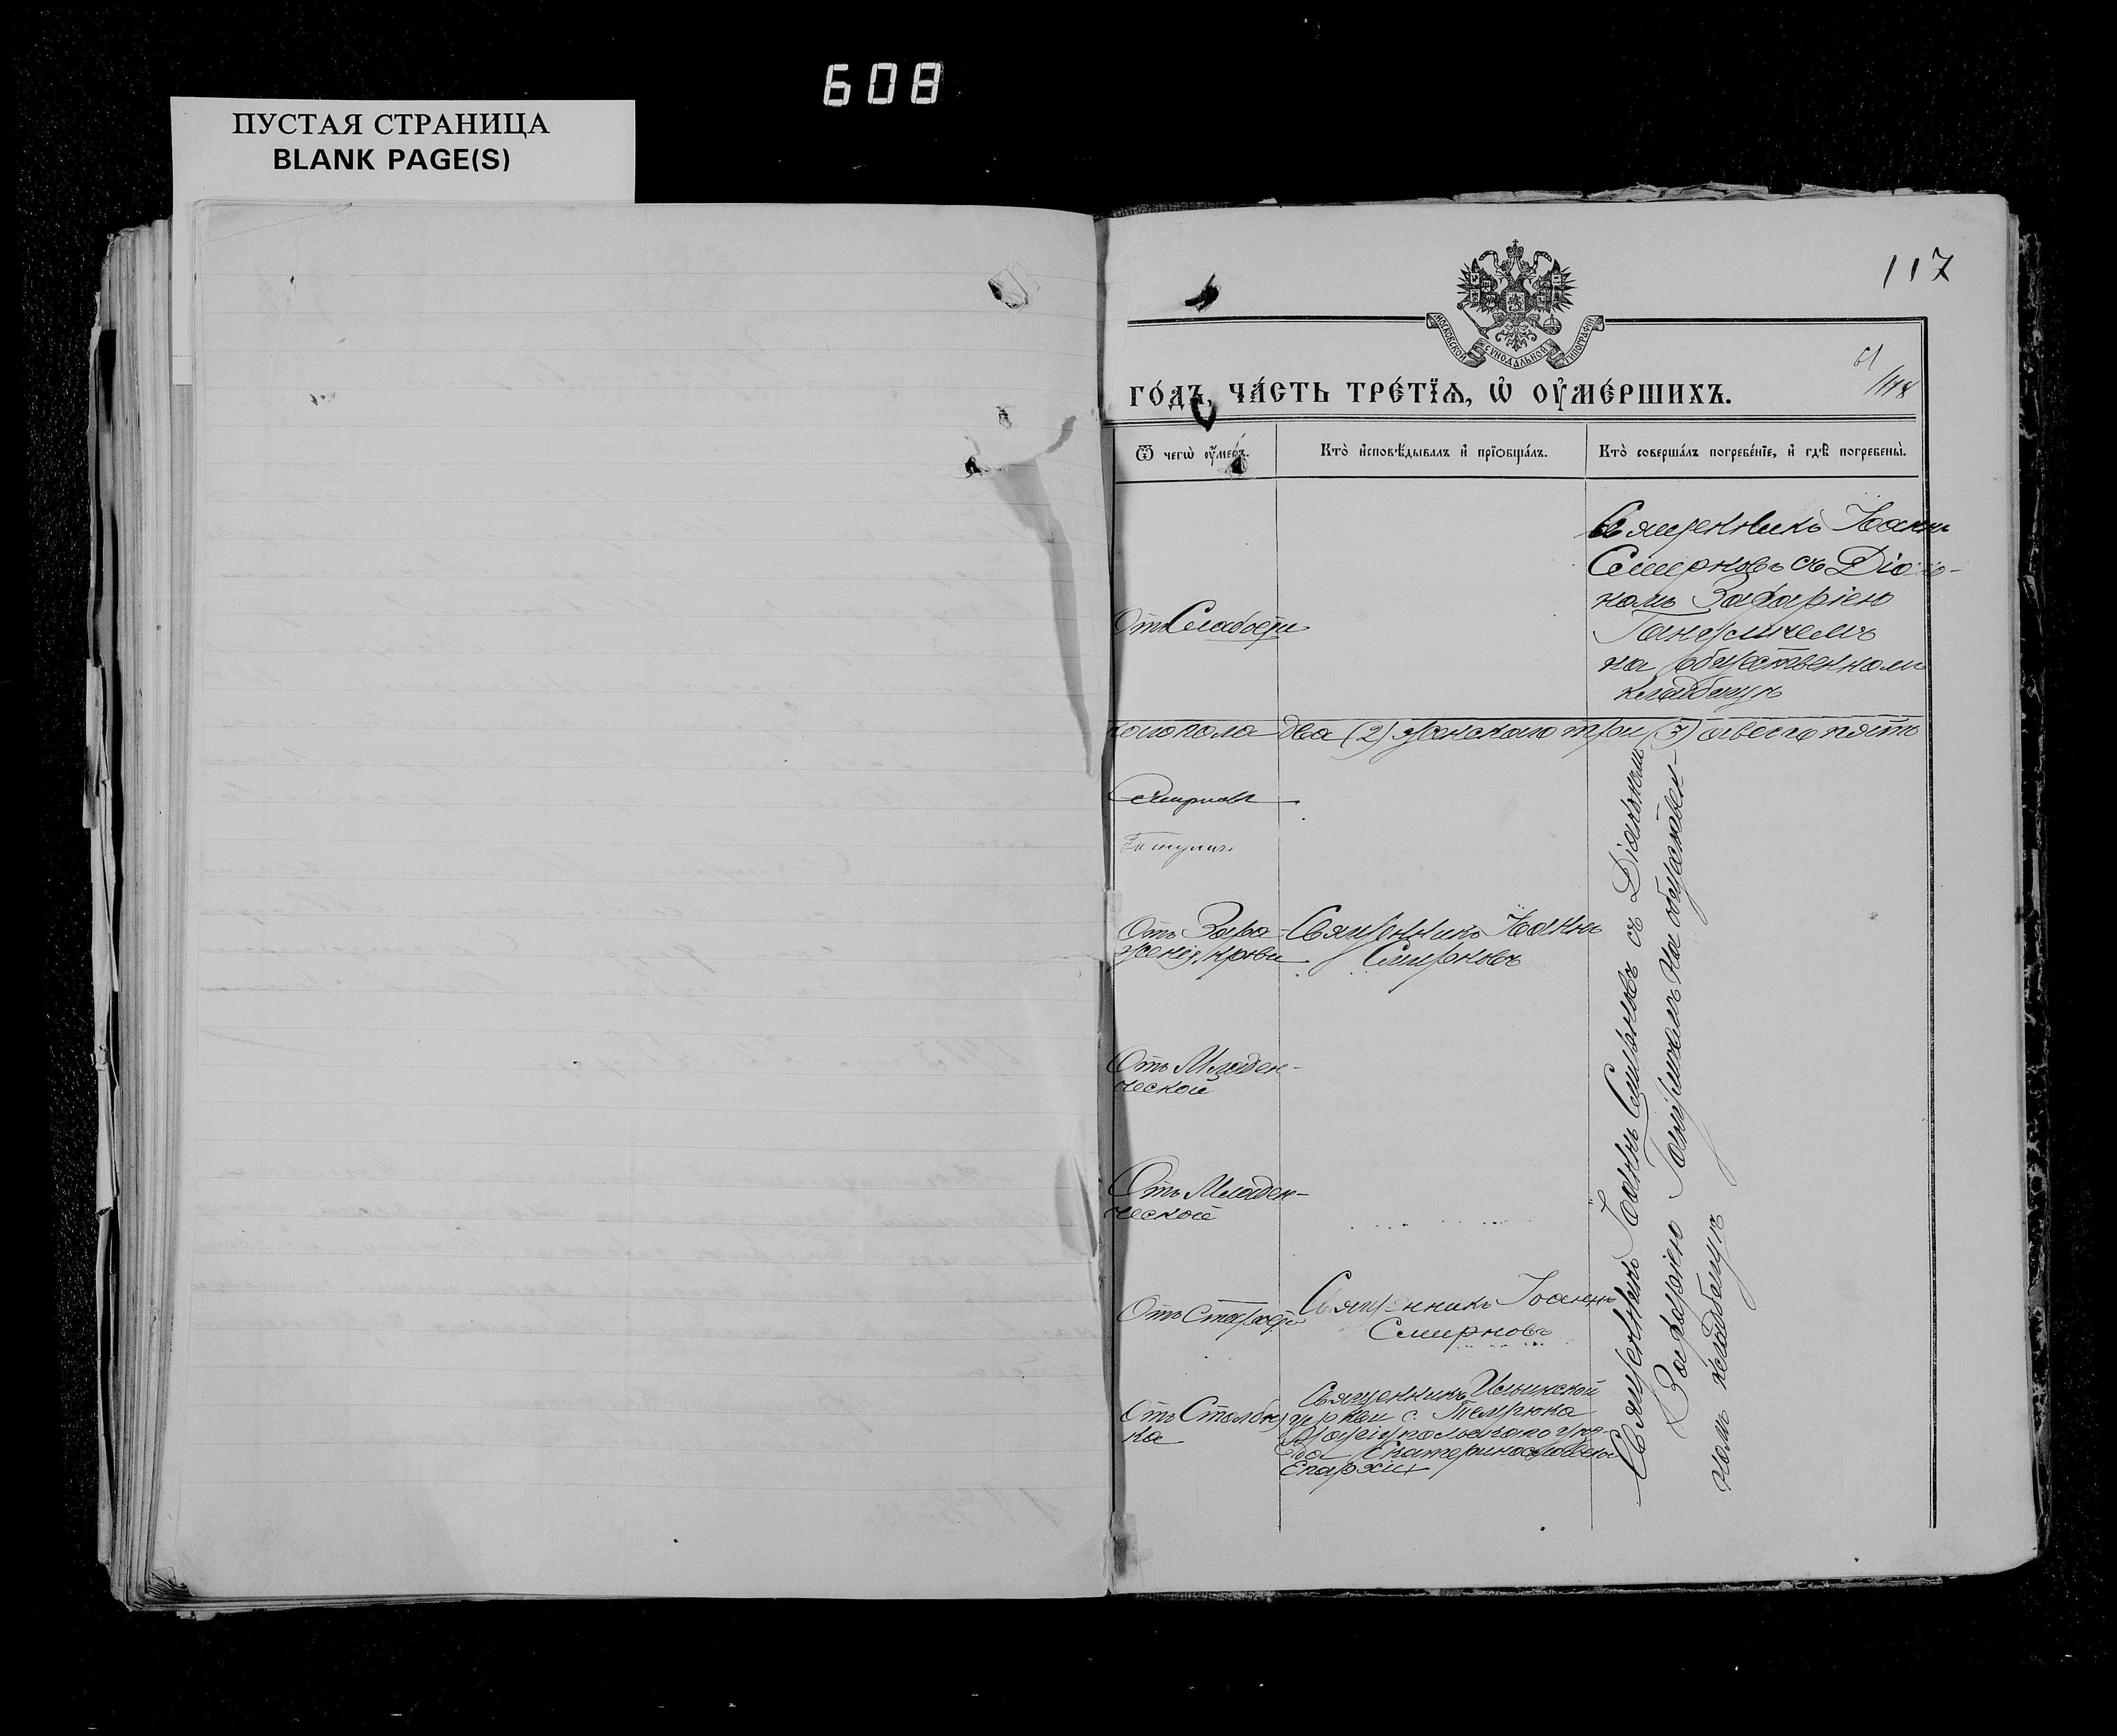 608
ПУСТАЯ СТРАНИЦА
BLANK PAGE(S)
117
МОСКОВСКОЙ СУНОДАЛЬНОЙ ТИПОГРАФІИ
118
ГО́ДЪ, ЧА́СТЬ ТРЕ́ТЇѦ, Ѡ҆ ОУ҆МЕ́РШИХЪ.
Ѿ чегѡ̀ ᲂу҆́меръ.
Кто̀ и҆сповѣ́дывалъ и҆ прїѡбща́лъ.
Кто̀ соверша́лъ погребе́нїе, и҆ гдѣ̀ погребены̀.
Отъ Слабости
Священникъ Іоаннъ
Смирновъ съ Діако-
номъ Захаріею
на общественномъ
кладбищѣ
кого пола два (2) женскаго три (3) а всего пять
Смирновъ
Отъ Зара-
женія крови
Священникъ Іоаннъ
Смирновъ
Отъ Младен-
ческой
Отъ Младен-
ческой
Отъ Старости
Священникъ Іоаннъ
Смирновъ
Отъ Столбня
ка
Священникъ Ильинской
церкви с. Темрюка
Маріупольскаго уѣз-
да Екатеринославской
Епархіи
Священникъ Іоаннъ Смирновъ съ Діакономъ
Захаріею на обществен-
номъ кладбищѣ